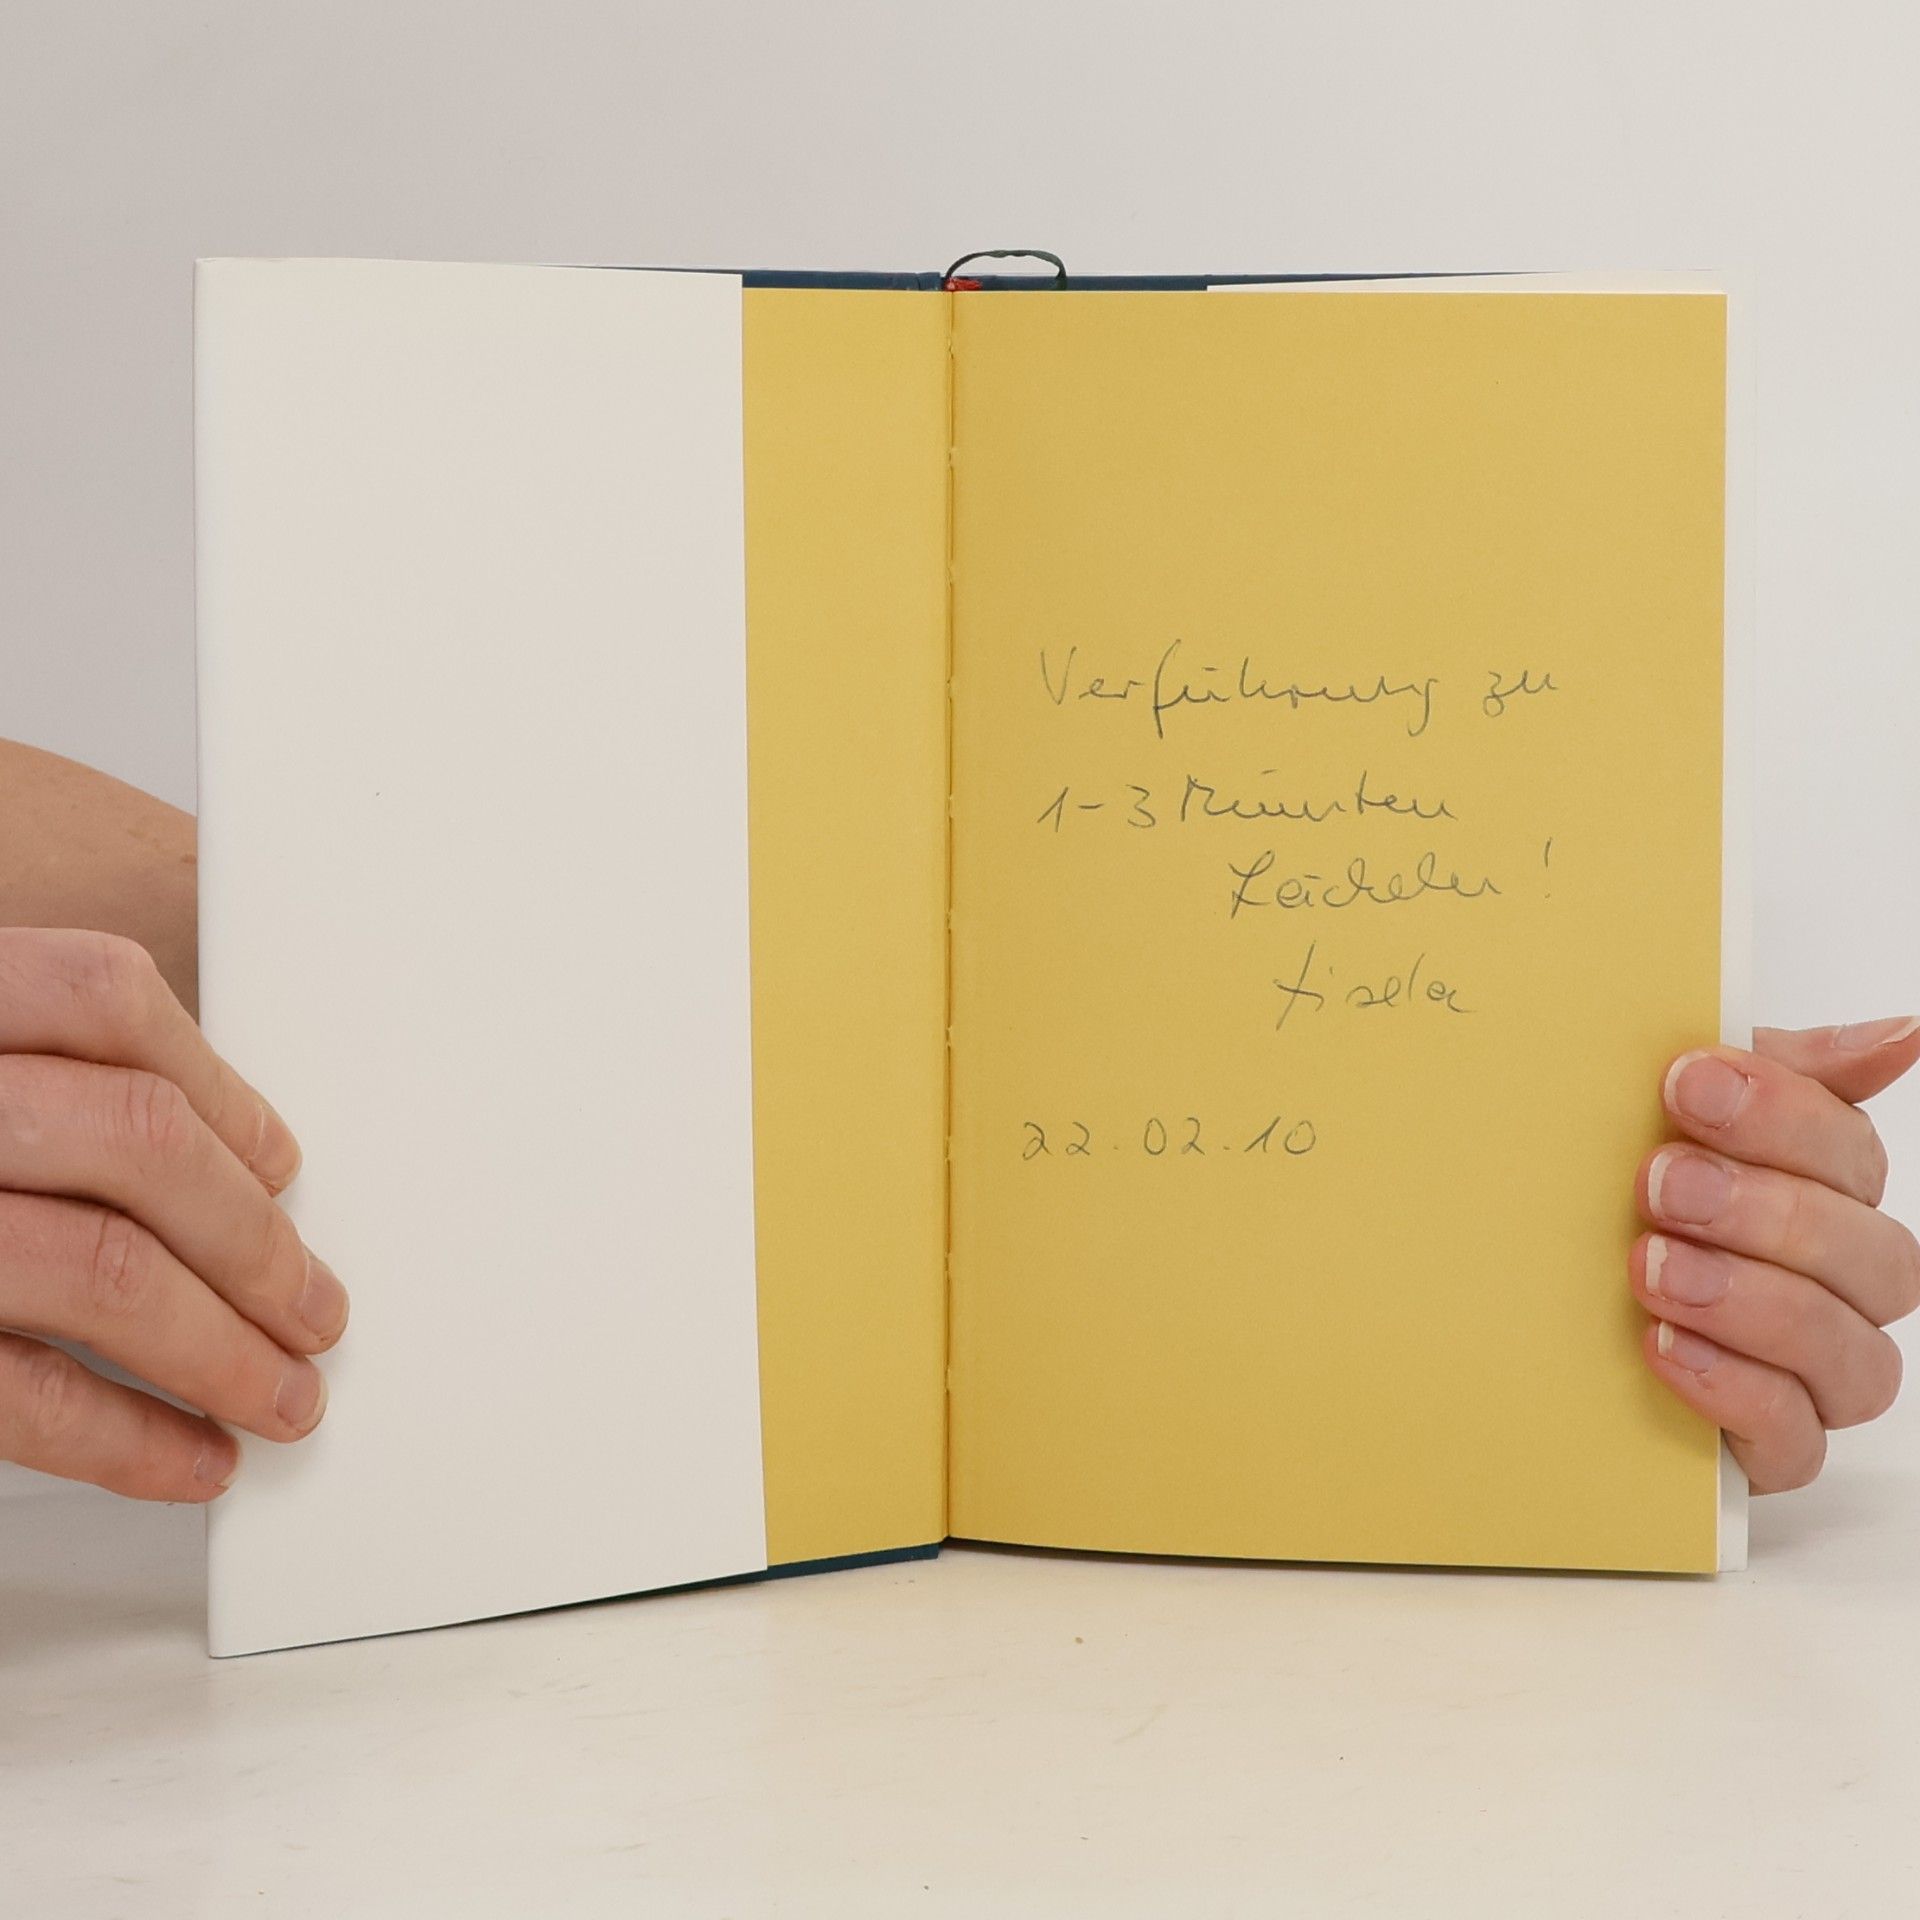 Verführung zu
1-3 Minuten
Lächeln!
Gisela
22.02.10